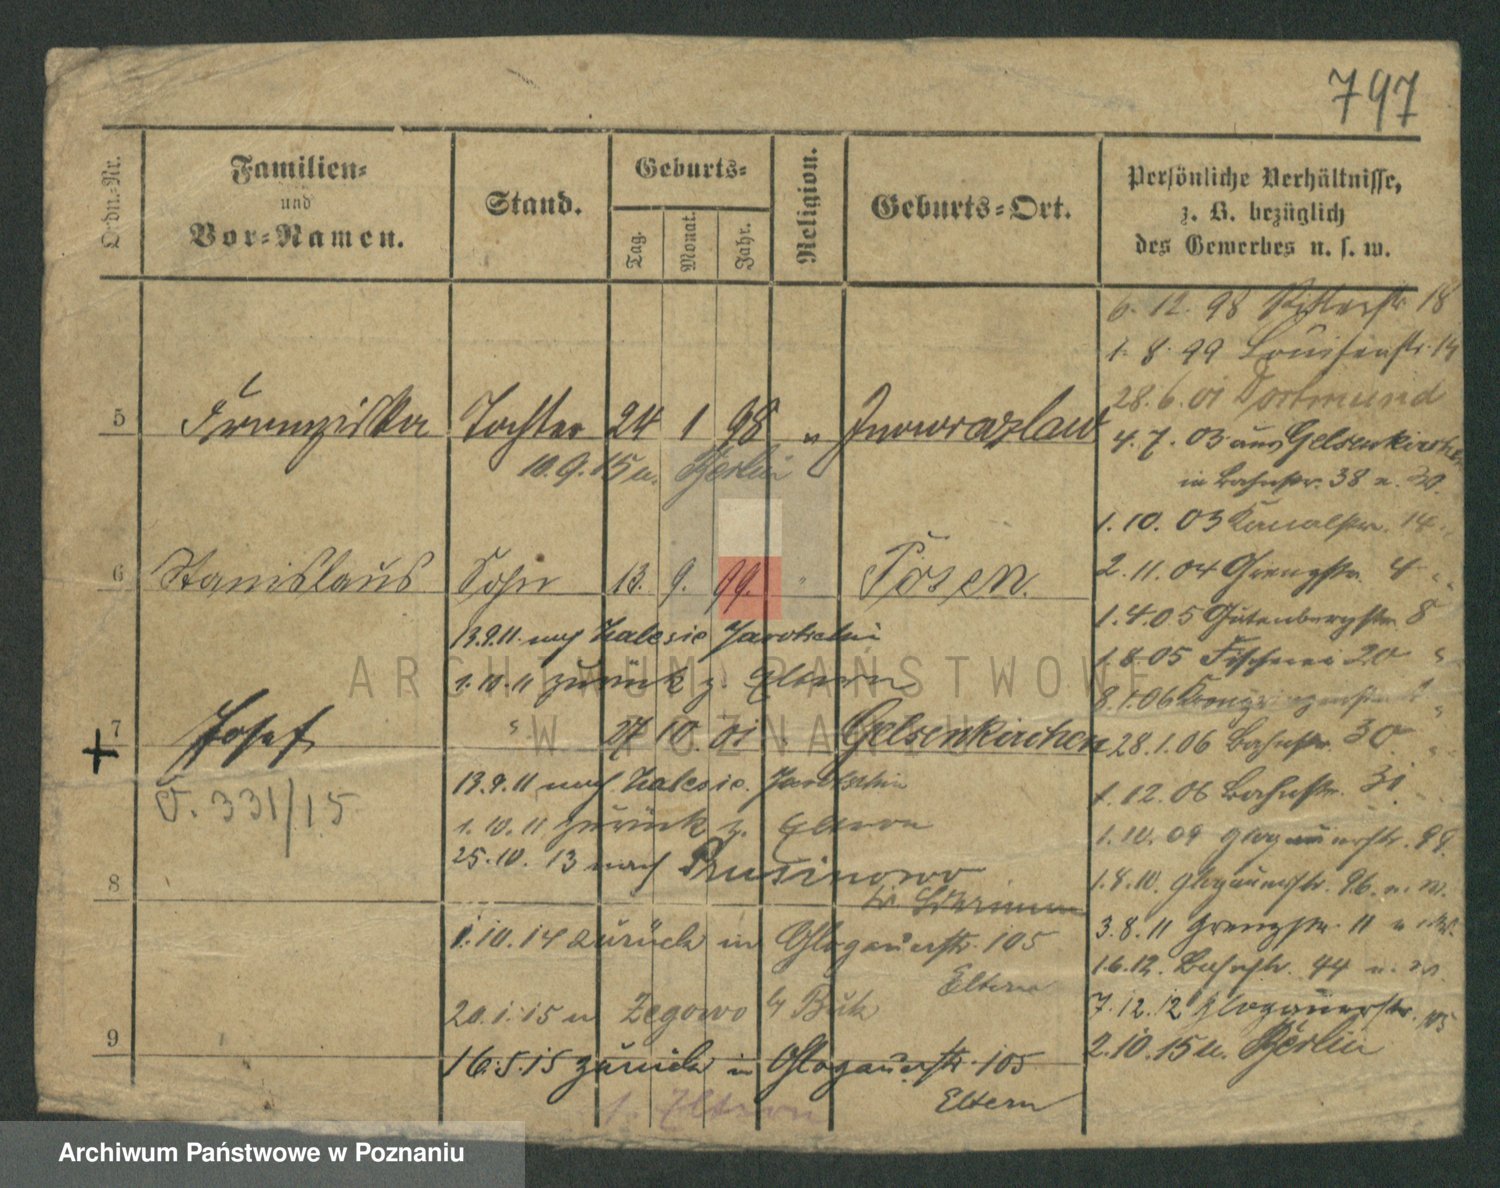 797
Ordn.-Nr.
Familien-
und
Vor-Namen.
Stand.
Geburts-
Tag.
Monat.
Jahr.
Religion.
Geburts-Ort.
Persönliche Verhältnisse,
z. B. bezüglich
des Gewerbes u. s. w.
6. 12. 98 Ritterstr. 18
1. 8. 99 Louisenstr. 14
28. 6. 01 Dortmund
5 Franziska Tochter 24 1 98 " Inowrazlaw
4. 7. 03 aus Gelsenkirchen
10. 9. 15 n. Berlin
in Bahnstr. 38
1. 10. 03 Kanalstr. 14
6 Stanislaus Sohn 13. 9. 99. " Posen.
2. 11. 04 Grenzstr. 4
1. 4. 05 Gutenbergstr. 8
13.9.11 nach Zalesie Jarotschin
1. 8. 05 Fischerei 20
1. 10. 11 zurück z. Eltern
8. 1. 06
+ 7 Josef " 27 10 01 " Gelsenkirchen
28. 1. 06 Bahnstr. 30
13.9.11 nach Zalesie. Jarotschin
1. 12. 06 Bahnstr. 31
V. 331/15
1. 10. 11 zurück z. Eltern
1. 10. 09 Glogauerstr. 98.
25. 10. 13 nach Prusinowo
1. 8. 10. Glogauerstr. 96.
8
3. 8. 11 Grenzstr. 11
1. 10. 14 zurück in Glogauerstr. 105
Eltern
1.6.12. Bahnstr. 44
20. 1. 15 n Zegowo b/ Buk
7. 12. 12 Glogauerstr. 105
9
2. 10. 15 n. Berlin
16. 5. 15 zurück in Glogauerstr. 105
Eltern
s. Eltern
ARCHIWUM PAŃSTWOWE
W POZNANIU
Archiwum Państwowe w Poznaniu